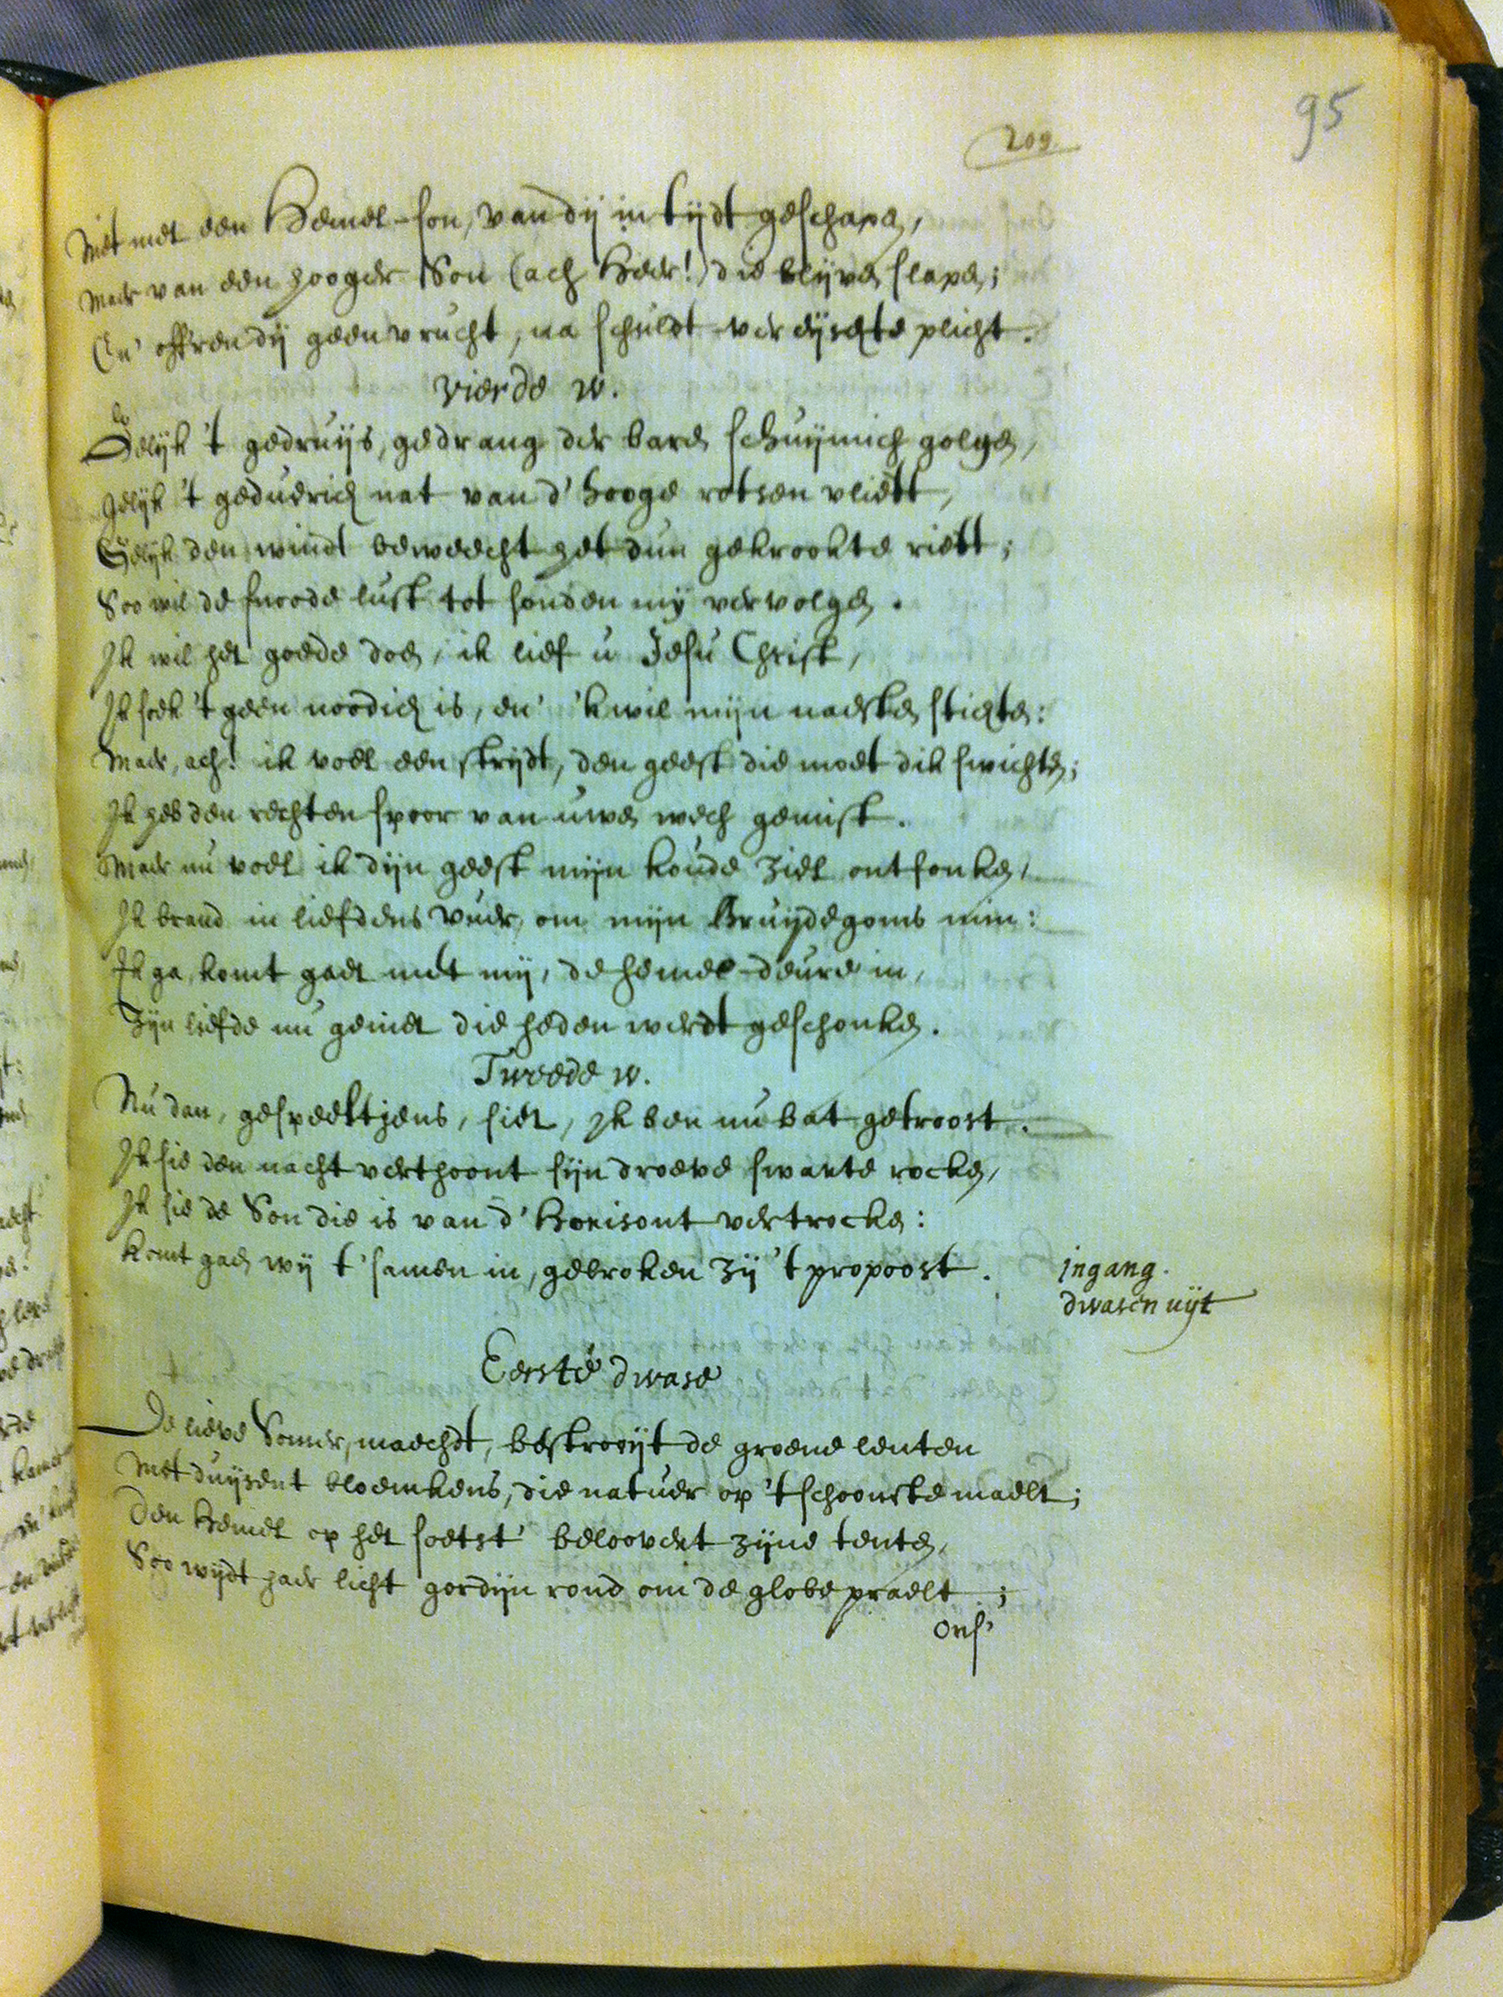 95
209.
Niet met een Hemel-son, van dij in tijdt geschapen,
Maer van een hooger Son (ach Heer!) die blijven slapen;
En' offren dij geen vrucht, na schuldt vereijschte plicht.
Vierde w.
Gelijk 't gedruijs, gedrang der baren schuijmich golgen,
Gelijk 't geduerich nat van d'hooge rotsen vliett,
Gelijk den windt beweecht het dun gekrookte riett;
Soo wil de snoode lust tot sonden mij vervolgen.
Ik wil het goede doen, ik lief u Jesu Christ,
Ik soek 't geen noodich is, en' 'k wil mijn naesten stichten:
Maer, ach! ik voel een strijdt, den geest die moet dik swichten;
Ik heb den rechten spoor van uwen wech gemist.
Maer nu voel ik dijn geest mijn koude ziel ontfonken,
Ik brand in liefdens vuer, om mijn Bruijdegoms min:
Ik ga, komt gaet met mij, de hemel-deure in,
Zijn liefde nu geniet die heden werdt geschonken.
Tweede w.
Nu dan, gespeeltjens, siet, ik ben nu bat getroost.
Ik sie den nacht verthoont sijn droeve swarte rocken,
Ik sie de Son die is van d'Horisont vertrocken:
Komt gaen wij t'samen in, gebroken zij 't propoost.
ingang.
dwasen uijt
Eerste dwase
De lieve Somer, maechdt, bestrooijt de groene lenten
Met duijsent bloemkens, die natuer op 't schoonste maelt;
Den Hemel op het soetst' beloovert zijne tenten,
Soo wijdt haer licht gordijn rond om de globe praelt;
Ons'